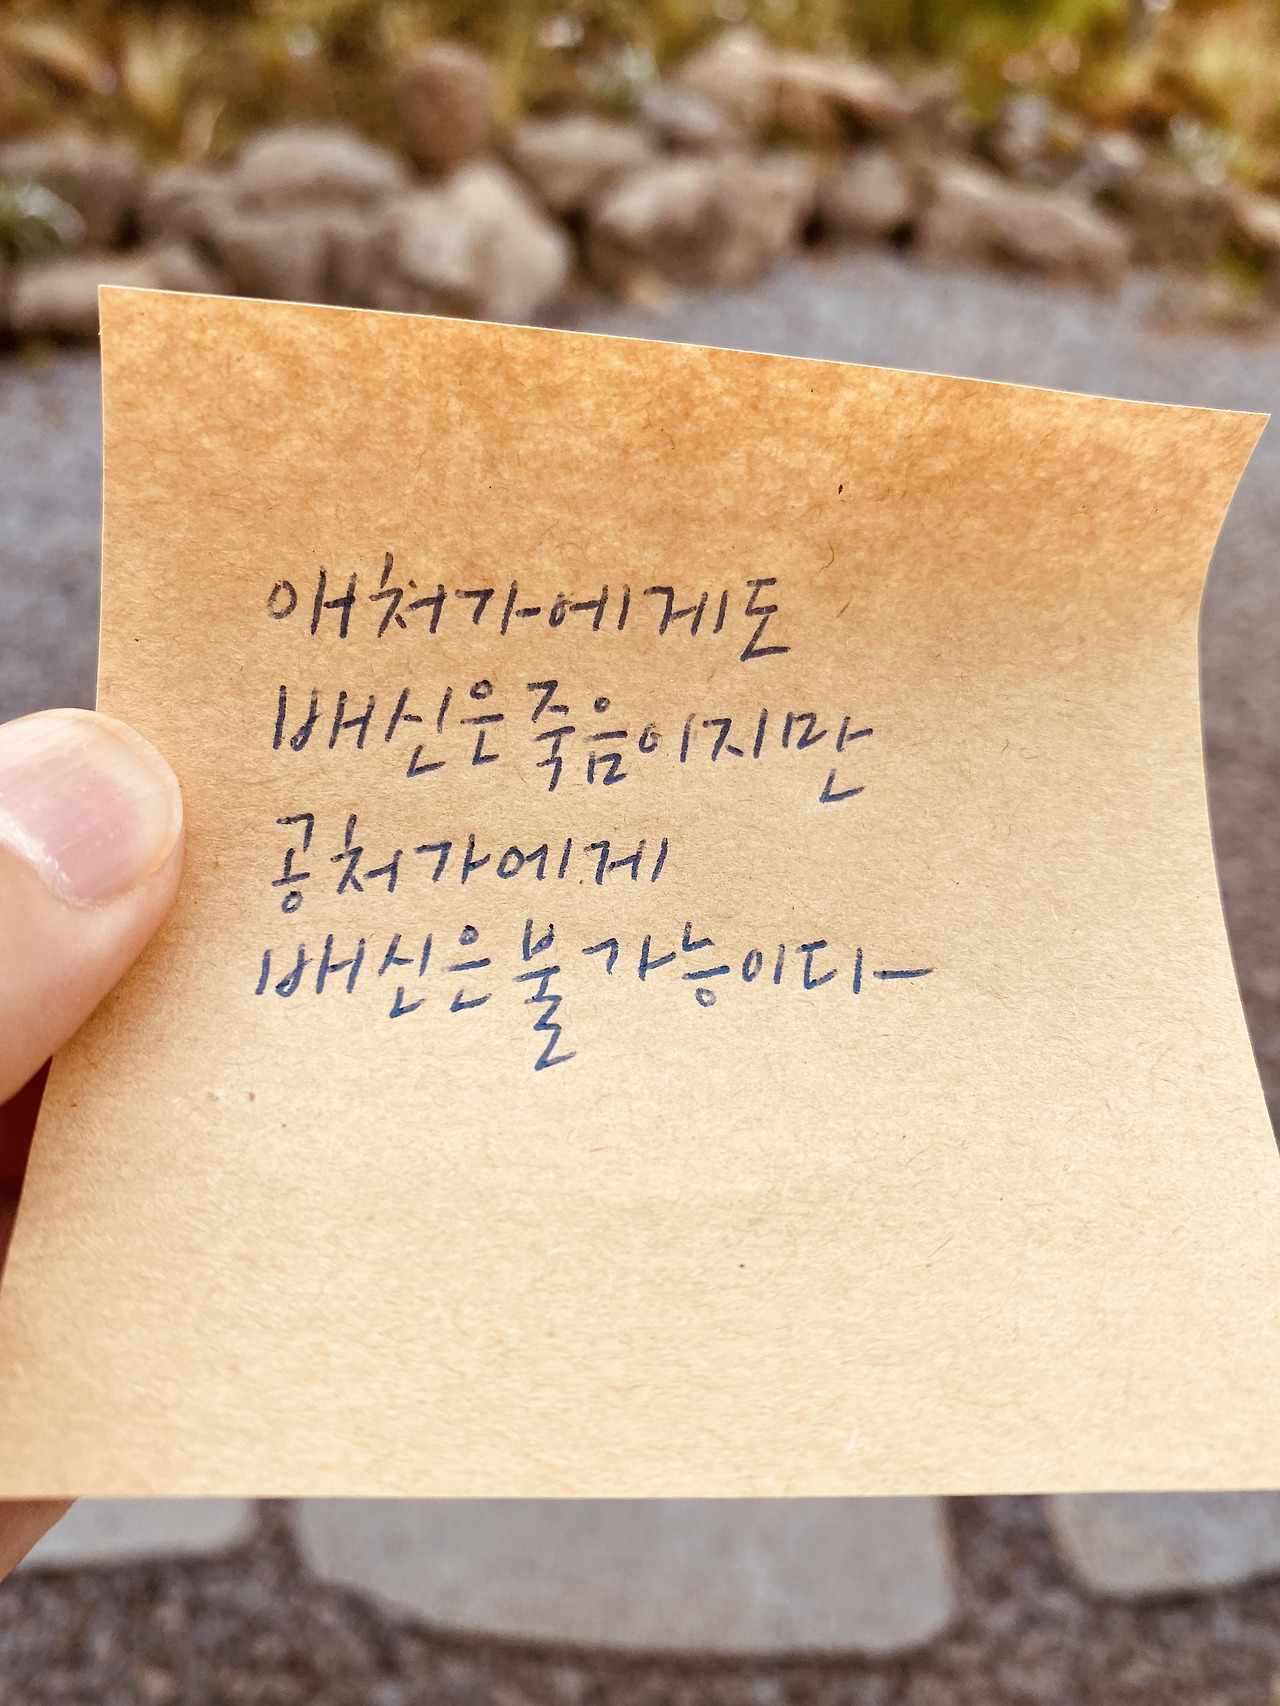 애처가에게도
배신은 죽음이지만
공처가에게
배신은 불가능이다-